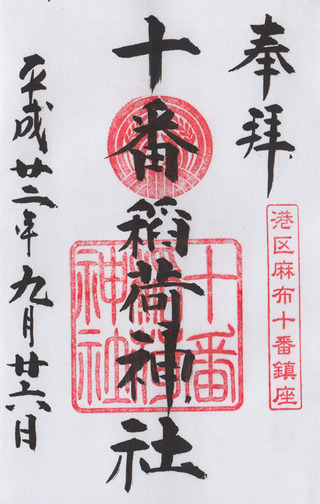 奉拝
港区麻布十番鎮座
十番稲荷神社
十番稲荷神社
平成廿二年九月廿六日